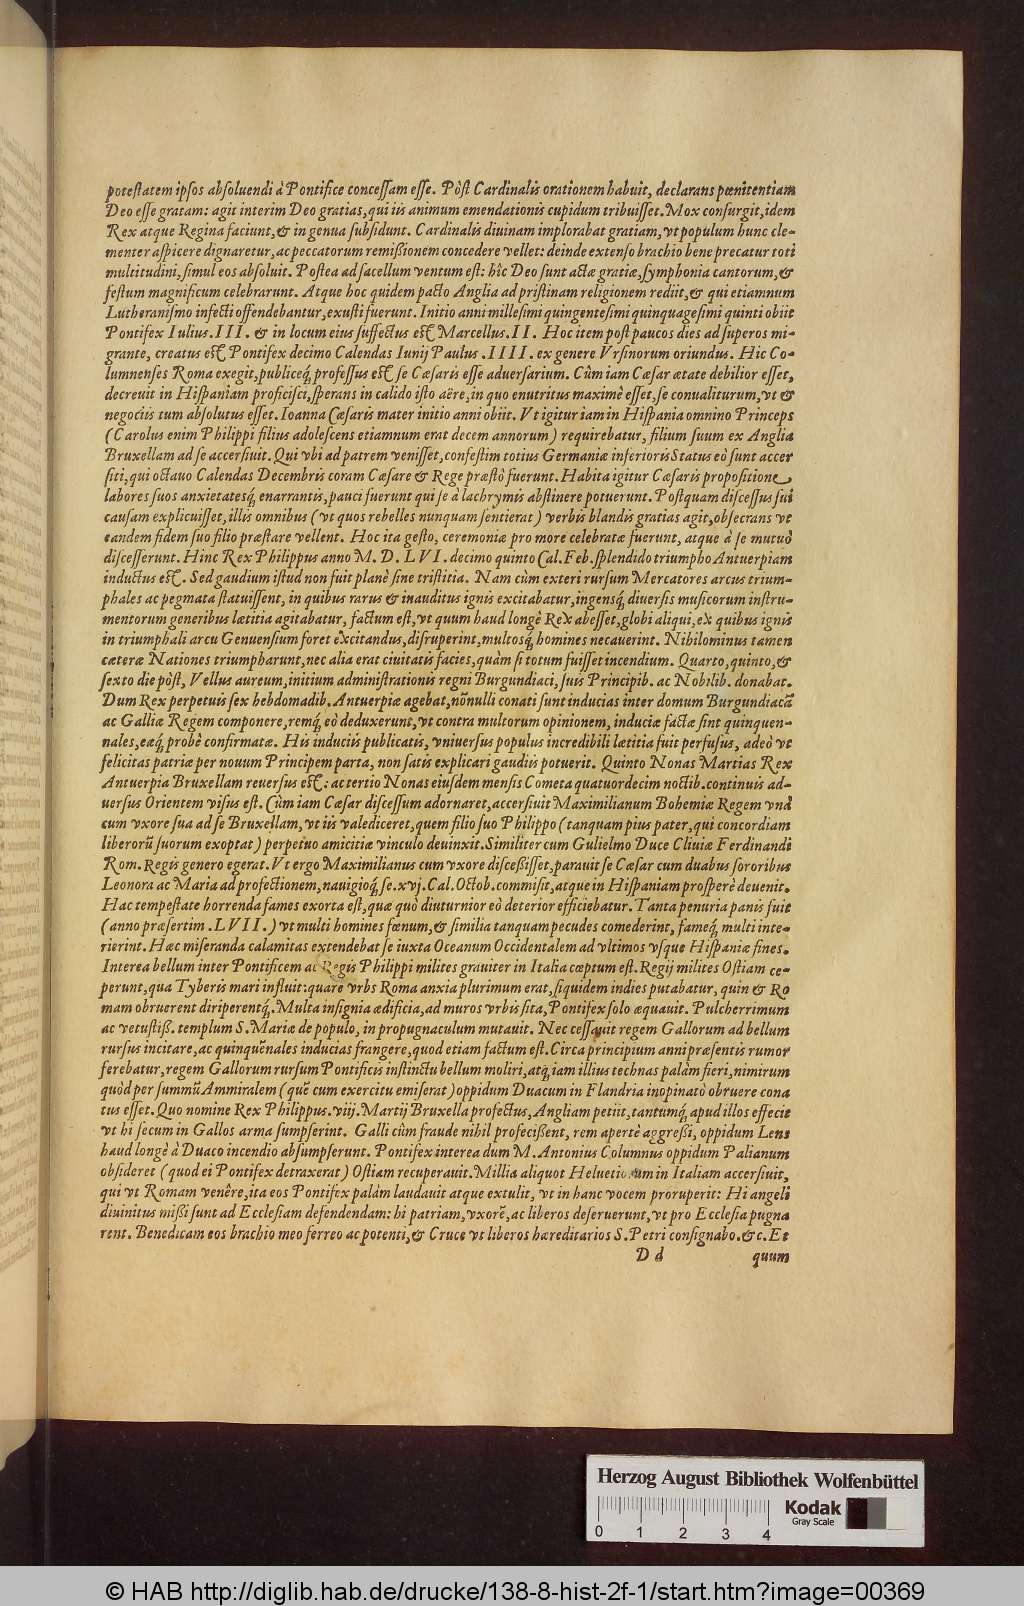 potestatem ipsos absoluendi à Pontifice concessam esse. Pòst Cardinalis orationem habuit, declarans pœnitentiam
Deo esse gratam: agit interim Deo gratias, qui iis animum emendationis cupidum tribuisset. Mox consurgit, idem
Rex atque Regina faciunt, & in genua subsidunt. Cardinalis diuinam implorabat gratiam, vt populum hunc cle-
menter aspicere dignaretur, ac peccatorum remißionem concedere vellet: deinde extenso brachio bene precatur toti
multitudini, simul eos absoluit. Postea ad sacellum ventum est: hîc Deo sunt actæ gratiæ, symphonia cantorum, &
festum magnificum celebrarunt. Atque hoc quidem pacto Anglia ad pristinam religionem rediit, & qui etiamnum
Lutheranismo infecti offendebantur, exusti fuerunt. Initio anni millesimi quingentesimi quinquagesimi quinti obiit
Pontifex Iulius. III. & in locum eius suffectus est Marcellus. II. Hoc item post paucos dies ad superos mi-
grante, creatus est Pontifex decimo Calendas Iunij Paulus .IIII. ex genere Vrsinorum oriundus. Hic Co-
lumnenses Roma exegit, publiceq́; professus est se Cæsaris esse aduersarium. Cùm iam Cæsar ætate debilior esset,
decreuit in Hispaniam proficisci, sperans in calido isto aëre, in quo enutritus maximè esset, se conualiturum, vt &
negociis tum absolutus esset. Ioanna Cæsaris mater initio anni obiit. Vt igitur iam in Hispania omnino Princeps
(Carolus enim Philippi filius adolescens etiamnum erat decem annorum) requirebatur, filium suum ex Anglia
Bruxellam ad se accersiuit. Qui vbi ad patrem venisset, confestim totius Germaniæ inferioris Status eò sunt accer
siti, qui octauo Calendas Decembris coram Cæsare & Rege præstò fuerunt. Habita igitur Cæsaris propositione
labores suos anxietatesq́; enarrantis, pauci fuerunt qui se à lachrymis abstinere potuerunt. Postquam discessus sui
causam explicuisset, illis omnibus (vt quos rebelles nunquam sentierat) verbis blandis gratias agit, obsecrans vt
eandem fidem suo filio præstare vellent. Hoc ita gesto, ceremoniæ pro more celebratæ fuerunt, atque à se mutuò
discesserunt. Hinc Rex Philippus anno M. D. LVI. decimo quinto Cal. Feb. splendido triumpho Antuerpiam
inductus est. Sed gaudium istud non fuit planè sine tristitia. Nam cùm exteri rursum Mercatores arcus trium-
phales ac pegmata statuissent, in quibus rarus & inauditus ignis excitabatur, ingensq́; diuersis musicorum instru-
mentorum generibus lætitia agitabatur, factum est, vt quum haud longè Rex abesset, globi aliqui, ex quibus ignis
in triumphali arcu Genuensium foret excitandus, disruperint, multosq́; homines necauerint. Nihilominus tamen
cæteræ Nationes triumpharunt, nec alia erat ciuitatis facies, quàm si totum fuisset incendium. Quarto, quinto, &
sexto die pòst, Vellus aureum, initium administrationis regni Burgundiaci, suis Principib. ac Nobilib. donabat.
Dum Rex perpetuis sex hebdomadib. Antuerpiæ agebat, nõnulli conati sunt inducias inter domum Burgundiacã
ac Galliæ Regem componere, remq́; eò deduxerunt, vt contra multorum opinionem, induciæ factæ sint quinquen-
nales, eæq́; probè confirmatæ. His induciis publicatis, vniuersus populus incredibili lætitia fuit perfusus, adeò vt
felicitas patriæ per nouum Principem parta, non satis explicari gaudiis potuerit. Quinto Nonas Martias Rex
Antuerpia Bruxellam reuersus est: ac tertio Nonas eiusdem mensis Cometa quatuordecim noctib. continuis ad-
uersus Orientem visus est. Cùm iam Cæsar discessum adornaret, accersiuit Maximilianum Bohemiæ Regem vnà
cum vxore sua ad se Bruxellam, vt iis valediceret, quem filio suo Philippo (tanquam pius pater, qui concordiam
liberorũ suorum exoptat) perpetuo amicitiæ vinculo deuinxit. Similiter cum Gulielmo Duce Cliuiæ Ferdinandi
Rom. Regis genero egerat. Vt ergo Maximilianus cum vxore disceßisset, parauit se Cæsar cum duabus sororibus
Leonora ac Maria ad profectionem, nauigioq́; se. xvj. Cal. Octob. commisit, atque in Hispaniam prosperè deuenit.
Hac tempestate horrenda fames exorta est, quæ quò diuturnior eò deterior efficiebatur. Tanta penuria panis fuit
(anno præsertim .LVII.) vt multi homines fœnum, & similia tanquam pecudes comederint, fameq́; multi inte-
rierint. Hæc miseranda calamitas extendebat se iuxta Oceanum Occidentalem ad vltimos vsque Hispaniæ fines.
Interea bellum inter Pontificem ac Regis Philippi milites grauiter in Italia cœptum est. Regij milites Ostiam ce-
perunt, qua Tyberis mari influit: quare vrbs Roma anxia plurimum erat, siquidem indies putabatur, quin & Ro
mam obruerent diriperentq́;. Multa insignia ædificia, ad muros vrbis sita, Pontifex solo æquauit. Pulcherrimum
ac vetustiß. templum S. Mariæ de populo, in propugnaculum mutauit. Nec cessauit regem Gallorum ad bellum
rursus incitare, ac quinquẽnales inducias frangere, quod etiam factum est. Circa principium anni præsentis rumor
ferebatur, regem Gallorum rursum Pontificis instinctu bellum moliri, atq́; iam illius technas palàm fieri, nimirum
quòd per summũ Ammiralem (quẽ cum exercitu emiserat) oppidum Duacum in Flandria inopinatò obruere cona
tus esset. Quo nomine Rex Philippus. viij. Martij Bruxella profectus, Angliam petiit, tantumq́; apud illos effecit
vt hi secum in Gallos arma sumpserint. Galli cùm fraude nihil profecißent, rem apertè aggreßi, oppidum Lens
haud longè à Duaco incendio absumpserunt. Pontifex interea dum M. Antonius Columnus oppidum Palianum
obsideret (quod ei Pontifex detraxerat) Ostiam recuperauit. Millia aliquot Heluetiorum in Italiam accersiuit,
qui vt Romam venêre, ita eos Pontifex palàm laudauit atque extulit, vt in hanc vocem proruperit: Hi angeli
diuinitus mißi sunt ad Ecclesiam defendendam: hi patriam, vxorẽ, ac liberos deseruerunt, vt pro Ecclesia pugna
rent. Benedicam eos brachio meo ferreo ac potenti, & Cruce vt liberos hæreditarios S. Petri consignabo. &c. Et
D d quum
Herzog August Bibliothek Wolfenbüttel
0 1 2 3 4
Kodak
Gray Scale
© HAB http://diglib.hab.de/drucke/138-8-hist-2f-1/start.htm?image=00369